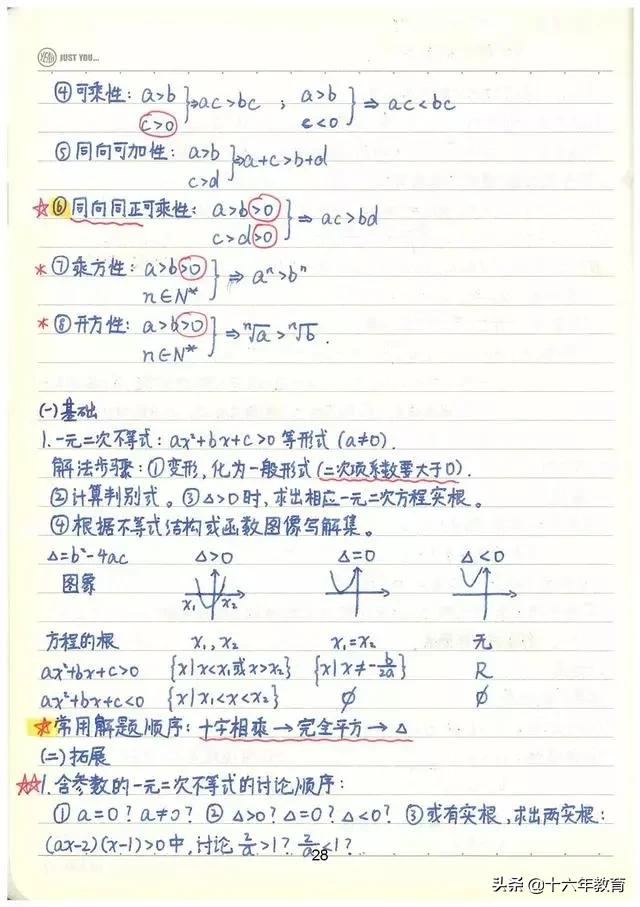 YEAH JUST YOU...
④可乘性: a>b c>0 }⇒ac>bc ; a>b c<0 }⇒ ac<bc
⑤同向可加性: a>b c>d }⇒a+c>b+d
☆⑥同向同正可乘性: a>b>0 c>d>0 }⇒ ac>bd
*⑦乘方性: a>b>0 n∈N* }⇒ aⁿ>bⁿ
*⑧开方性: a>b>0 n∈N* }⇒ ⁿ√a>ⁿ√b.
(一)基础
1.一元二次不等式: ax²+bx+c>0等形式(a≠0).
解法步骤:①变形,化为一般形式(二次项系数要大于0).
②计算判别式。③△>0时,求出相应一元二次方程实根。
④根据不等式结构或函数图像写解集。
△=b²-4ac △>0 △=0 △<0
图象 x₁ x₂
方程的根 x₁,x₂ x₁=x₂ 无
ax²+bx+c>0 {x|x<x₁或x>x₂} {x|x≠-b/2a} R
ax²+bx+c<0 {x|x₁<x<x₂} ∅ ∅
☆常用解题顺序:十字相乘→完全平方→△
(二)拓展
☆☆1.含参数的一元二次不等式的讨论顺序:
①a=0?a≠0? ②△>0?△=0?△<0? ③或有实根,求出两实根:
(ax-2)(x-1)>0中,讨论2/a>1?2/a<1?
28
头条@十六年教育